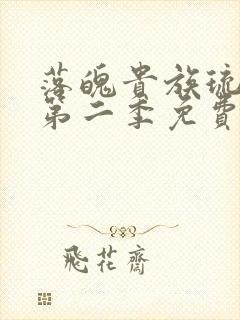 落魄貴族琉
第二季免費
飛花齋